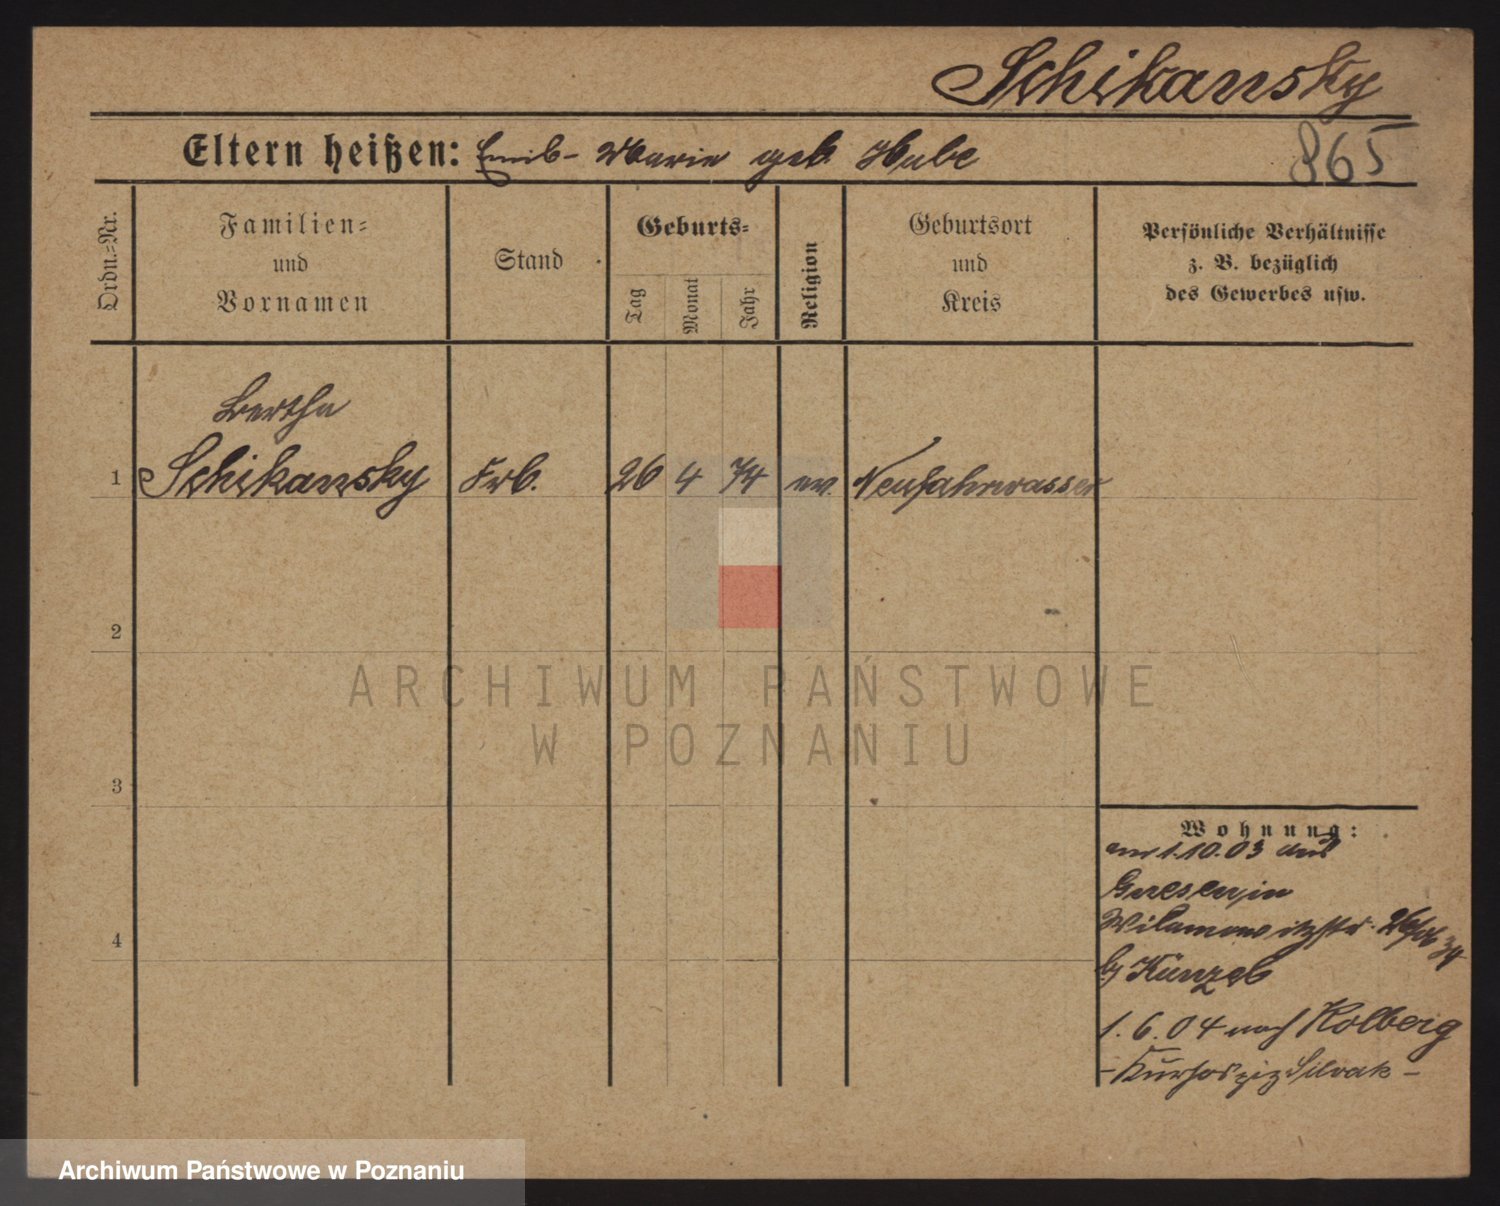 Schikansky
Eltern heißen: Emil - Marie geb. Hube
865
Ordn.=Nr.
Familien=
und
Vornamen
Stand
Geburts=
Tag
Monat
Jahr
Religion
Geburtsort
und
Kreis
Persönliche Verhältnisse
z. B. bezüglich
des Gewerbes usw.
Bertha
1 Schikansky Frl. 26 4 74 ev. Neufahrwasser
2
3
4
ARCHIWUM PAŃSTWOWE
W POZNANIU
Wohnung:
am 1.10.03 aus
Gnesen, in
Wilamowitzstr.
by Künzel
1.6.04 nach Kolberg
- Kurhospiz -
Archiwum Państwowe w Poznaniu